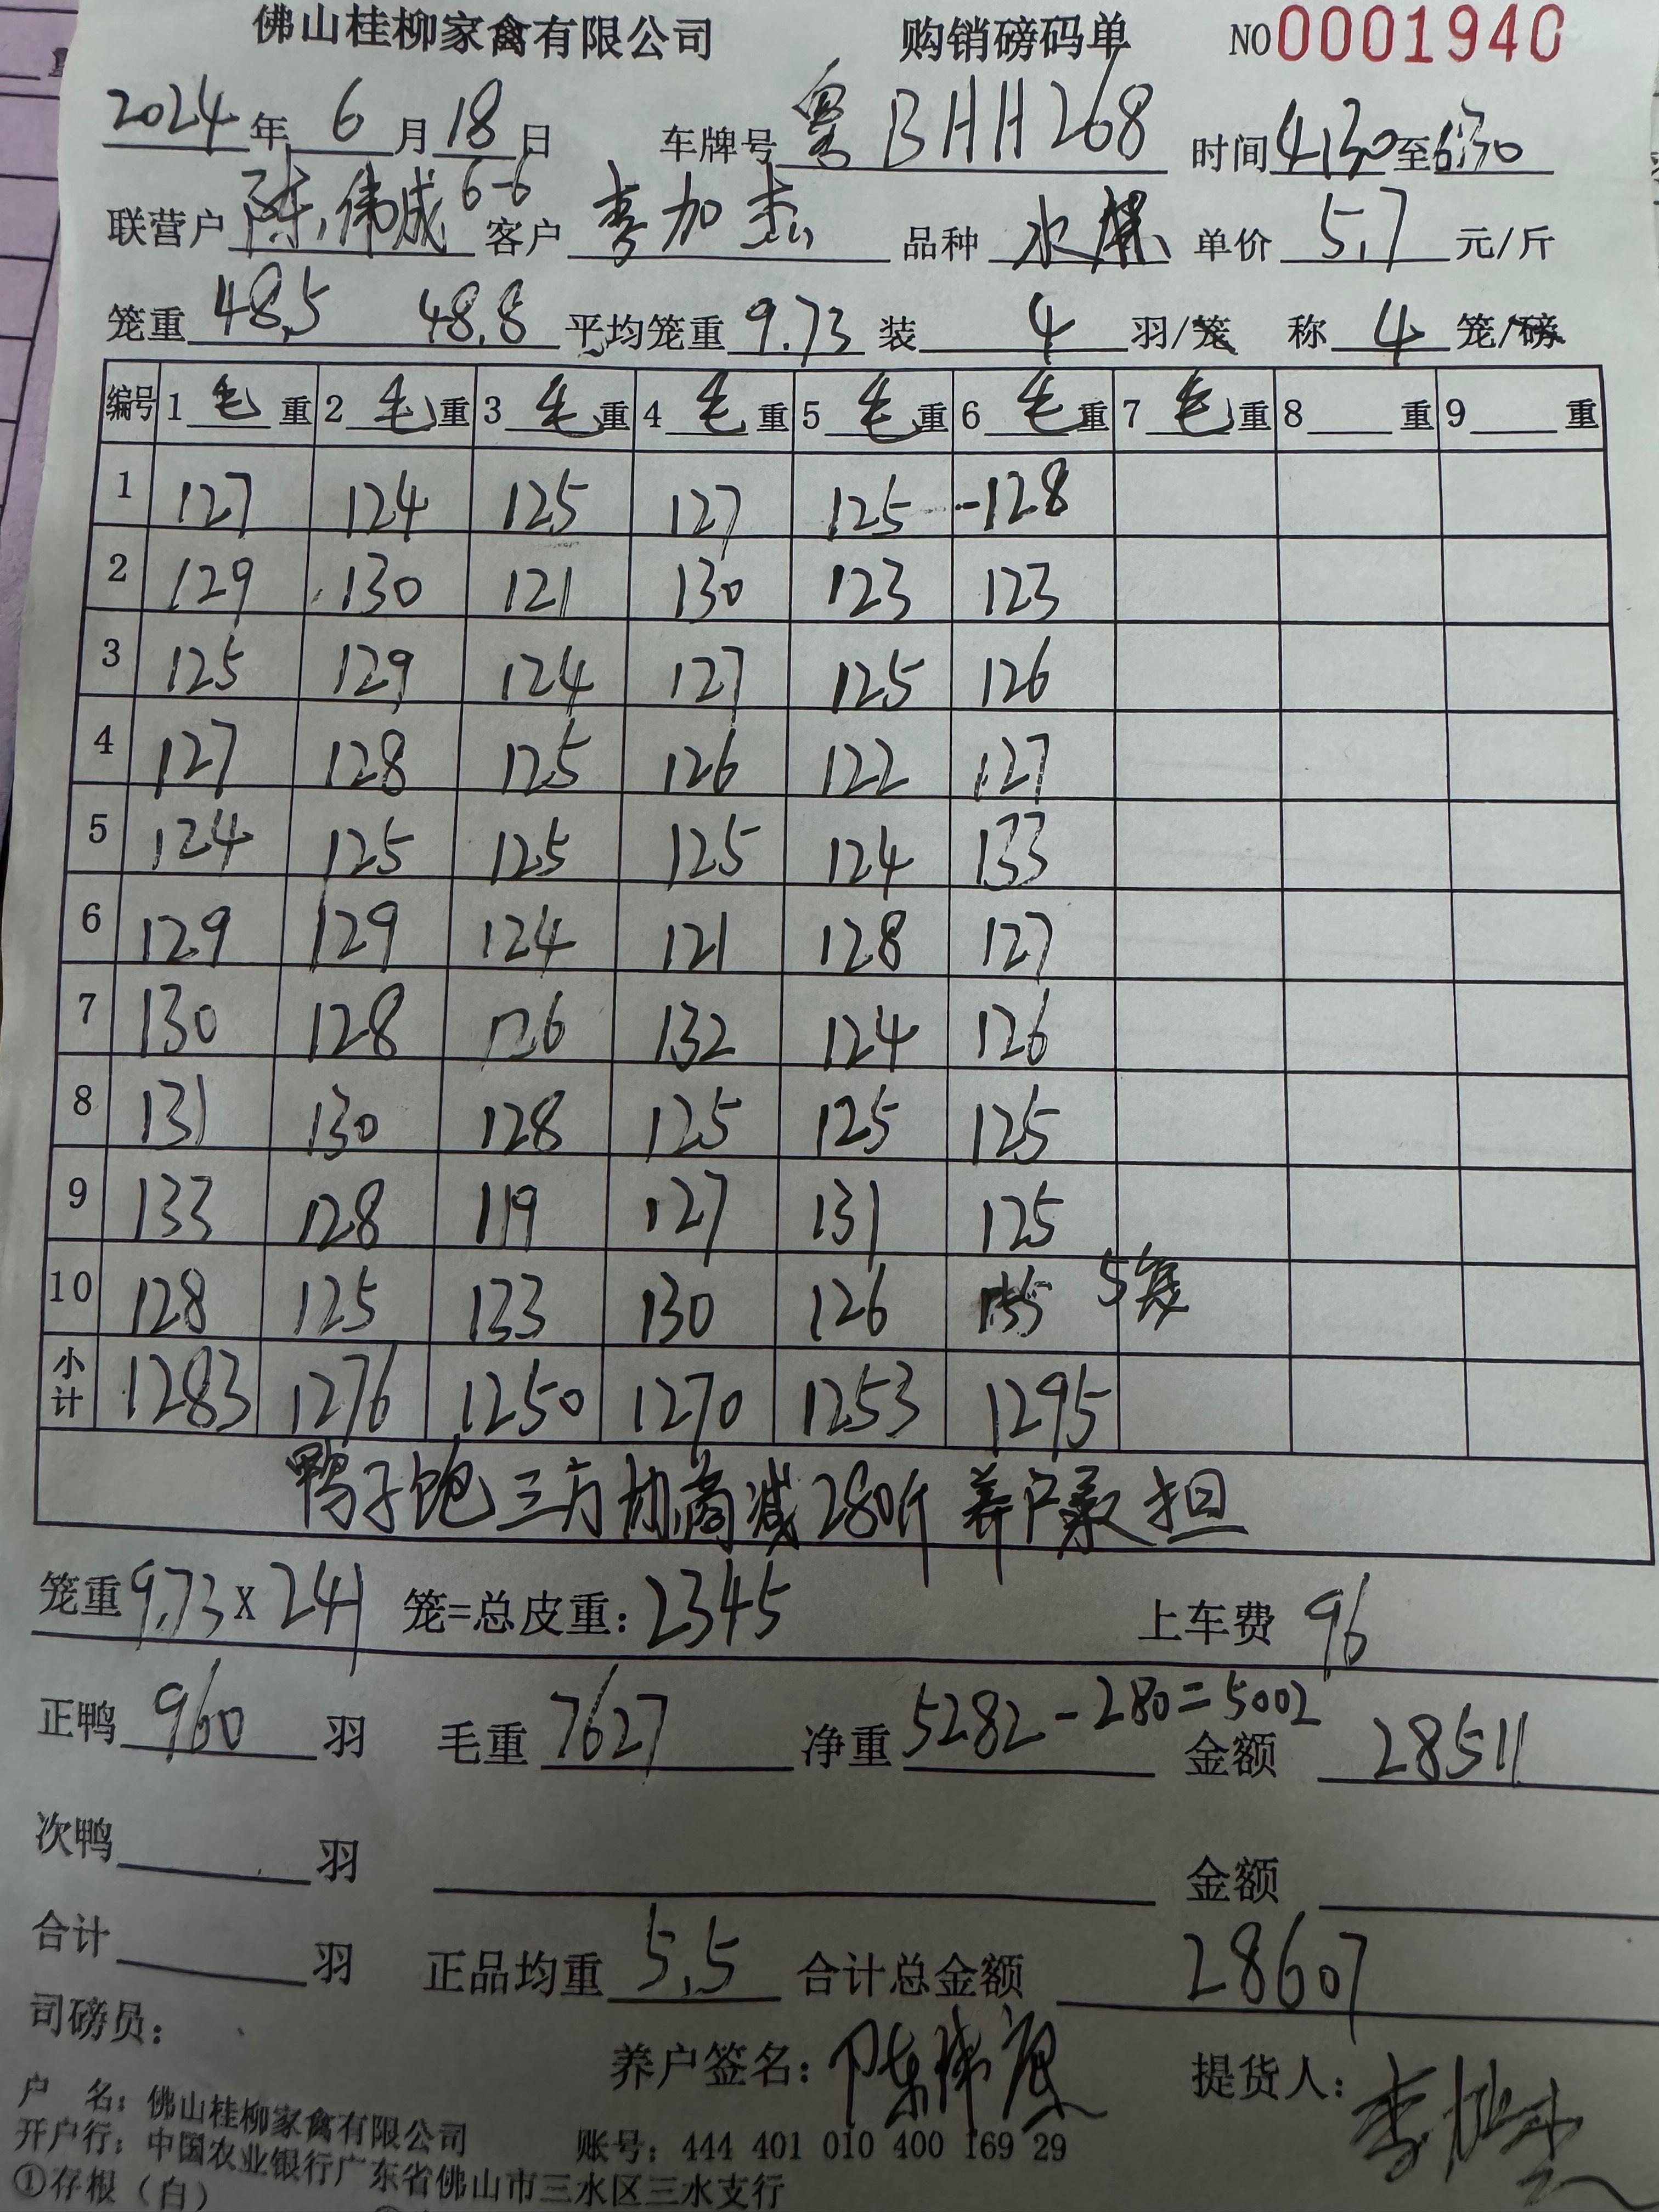 佛山桂柳家禽有限公司 购销磅码单 NO 0001940
2024年 6 月 18 日 车牌号 粤BHH268 时间 4:30 至 6:30
联营户 陈伟成 6-6 客户 李加杰 品种 水 单价 5.7 元/斤
笼重 48.5 48.8 平均笼重 9.73 装 4 羽/笼 称 4 笼/磅
编号 1 毛 重 2 毛 重 3 毛 重 4 毛 重 5 毛 重 6 毛 重 7 毛 重 8 重 9 重
1 127 124 125 127 125 -128
2 129 130 121 130 123 123
3 125 129 124 127 125 126
4 127 128 125 126 122 127
5 124 125 125 125 124 133
6 129 129 124 121 128 127
7 130 128 126 132 124 126
8 131 130 128 125 125 125
9 133 128 119 127 131 125
10 128 125 133 130 126 155 5笼
小计 1283 1276 1250 1270 1253 1295
鸭子饱三方协商减280斤 养户承担
笼重 9.73 X 241 笼=总皮重: 2345 上车费 96
正鸭 960 羽 毛重 7627 净重 5282-280=5002 金额 28511
次鸭 羽 金额
合计 羽 正品均重 5.5 合计总金额 28607
司磅员:
养户签名: 提货人: 李加杰
户 名: 佛山桂柳家禽有限公司
开户行: 中国农业银行广东省佛山市三水区三水支行 账号: 444 401 010 400 169 29
①存根（白）